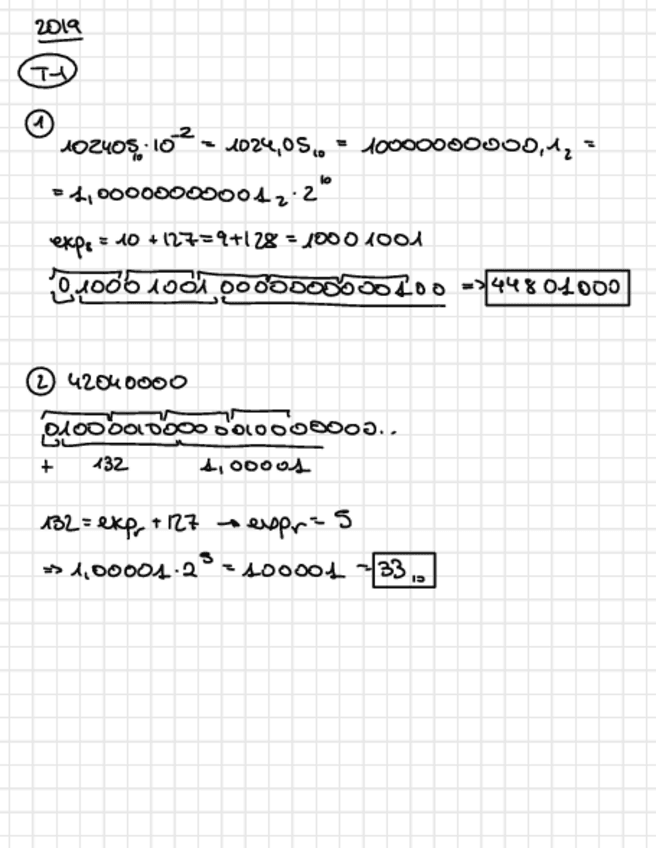 2019
T-1
1
102405₁₀ · 10⁻² = 1024,05₁₀ = 10000000000,1₂ =
= 1,00000000001₂ · 2¹⁰
expₑ = 10 + 127 = 9 + 128 = 10001001
0 10001001 00000000000100 => 44801000
2 42040000
01000010000001000000000..
+ 132 1,00001
132 = expᵣ + 127 → expᵣ = 5
=> 1,00001 · 2⁵ = 100001 = 33₁₀